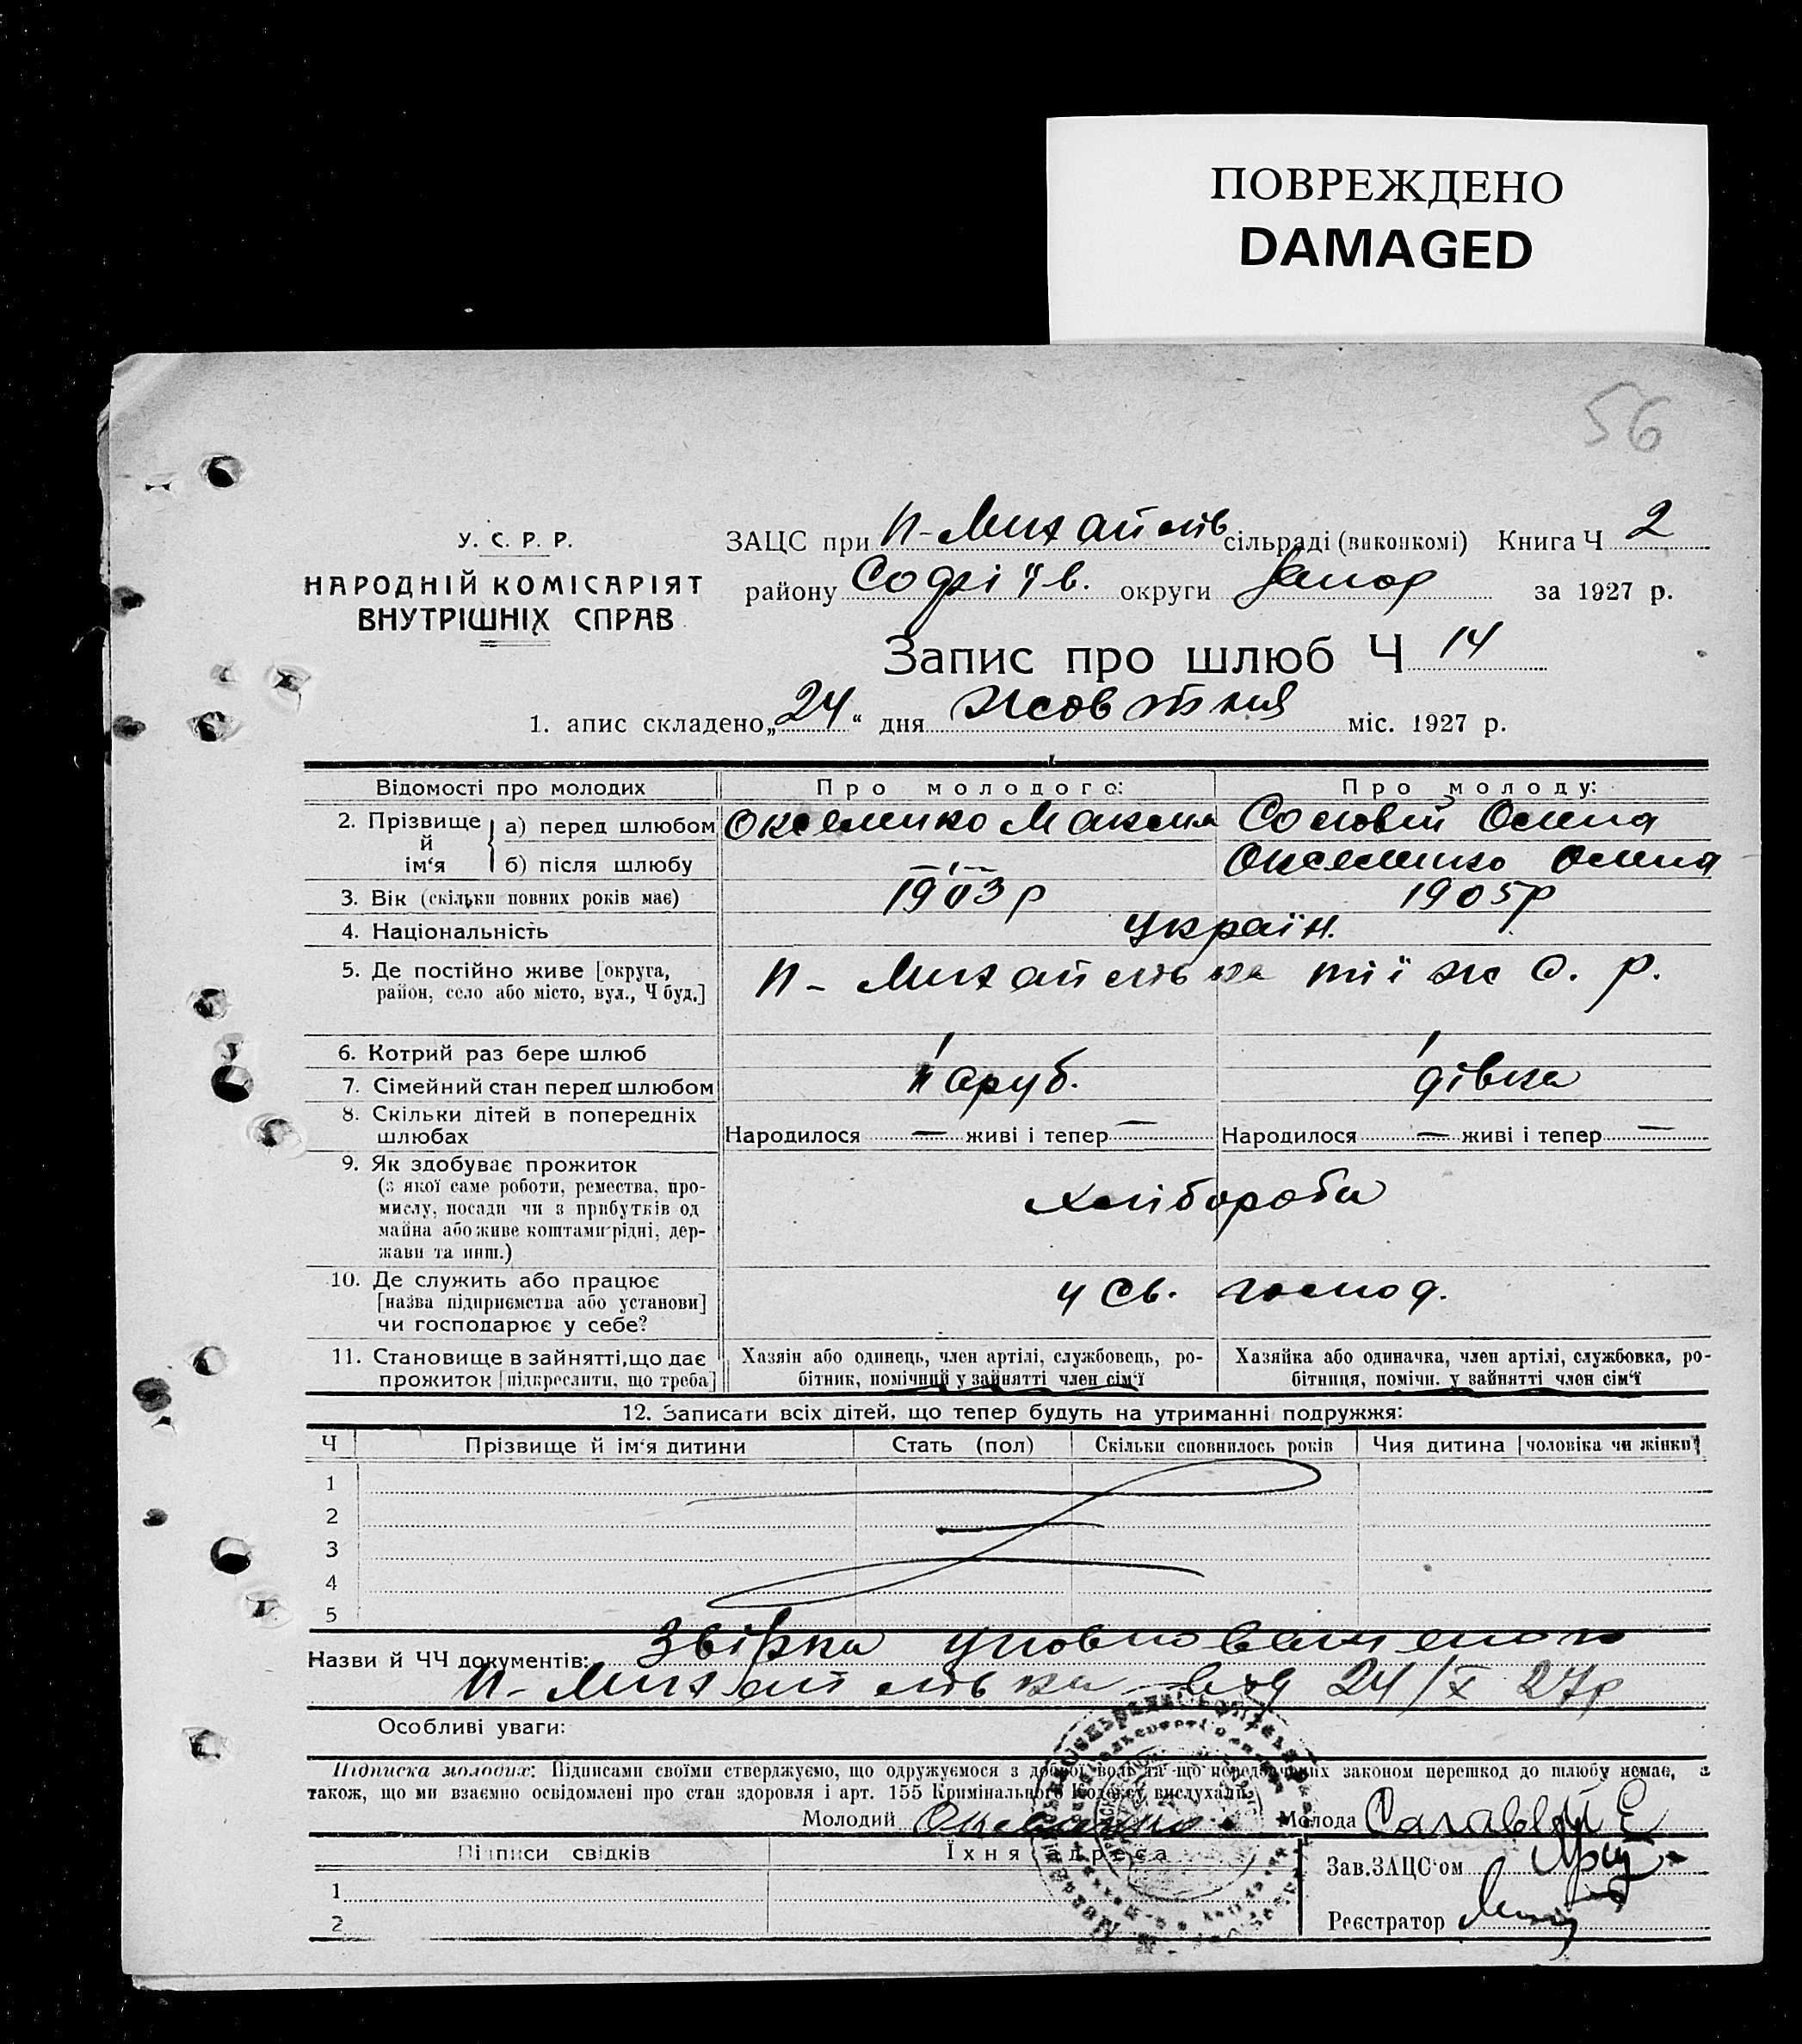 ПОВРЕЖДЕНО
DAMAGED
56
У. С. Р. Р.
НАРОДНІЙ КОМІСАРІЯТ
ВНУТРІШНІХ СПРАВ
ЗАЦС при Н-Михайлів сільраді (виконкомі) Книга Ч 2
району Софіїв. округи Запор за 1927 р.
Запис про шлюб Ч 14
1. апис складено „24“ дня Жовтня міс. 1927 р.
Відомості про молодих Про молодого: Про молоду:
2. Прізвище й ім‘я а) перед шлюбом Оксененко Максим Соловій Олена
б) після шлюбу —„— Оксененко Олена
3. Вік (скільки повних років має) 1903р 1905р
4. Національність Україн.
5. Де постійно живе [округа,
район, село або місто, вул., Ч буд.] Н-Михайлівка тії ж О. р.
6. Котрий раз бере шлюб 1 1
7. Сімейний стан перед шлюбом паруб. дівка
8. Скільки дітей в попередніх
шлюбах Народилося — живі і тепер — Народилося — живі і тепер —
9. Як здобуває прожиток
(з якої саме роботи, ремества, про-
мислу, посади чи з прибутків од
майна або живе коштами рідні, дер-
жави та инш.) хлібороби
10. Де служить або працює
[назва підприємства або установи]
чи господарює у себе? у св. господ.
11. Становище в зайнятті, що дає Хазяін або одинець, член артілі, службовець, ро- Хазяйка або одиначка, член артілі, службовка, ро-
прожиток [підкреслити, що треба] бітник, помічний у зайнятті член сім‘ї бітниця, помічн. у зайнятті член сім‘ї
12. Записати всіх дітей, що тепер будуть на утриманні подружжя:
Ч Прізвище й ім‘я дитини Стать (пол) Скільки сповнилось років Чия дитина [чоловіка чи жінки]
1
2
3
4
5
Назви й ЧЧ документів: Звірка уповноваженого
Н-Михайлівки від 24/X 27р
Особливі уваги:
Підписка молодих: Підписами своїми стверджуємо, що одружуємося з доброї волі та що передбачених законом перешкод до шлюбу немає, а
також, що ми взаємно освідомлені про стан здоровля і арт. 155 Кримінального Кодексу вислухали.
Молодий Молода Салавей Е
Підписи свідків Їхня адреса Зав. ЗАЦС‘ом
1
2 Реєстратор